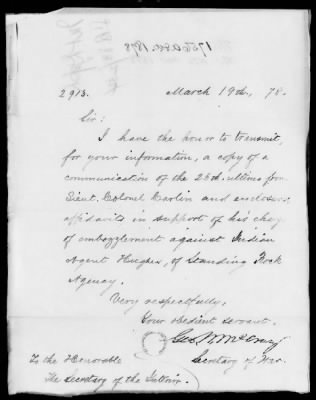 1756 a.a. 1878
2913.
March 19th, 78.
Sir:
I have the honor to transmit,
for your information, a copy of a
communication of the 25th ultimo from
Lieut. Colonel Carlin and enclosure
affidavits in support of his charge
of embezzlement against Indian
Agent Hughes, of Standing Rock
Agency.
Very respectfully,
Your obedient servant.
Geo. W. McCrary
Secretary of War.
To the Honorable
The Secretary of the Interior.